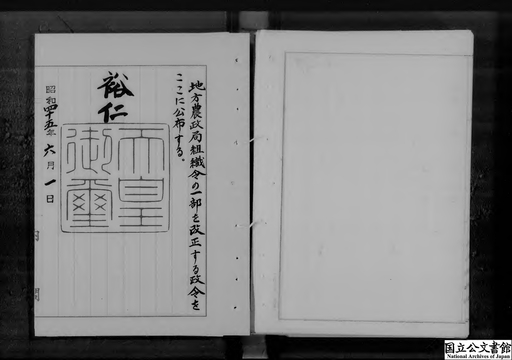 地方農政局組織令の一部を改正する政令を
ここに公布する。
裕仁
天皇
御璽
昭和四十五年六月一日
内閣
国立公文書館
National Archives of Japan